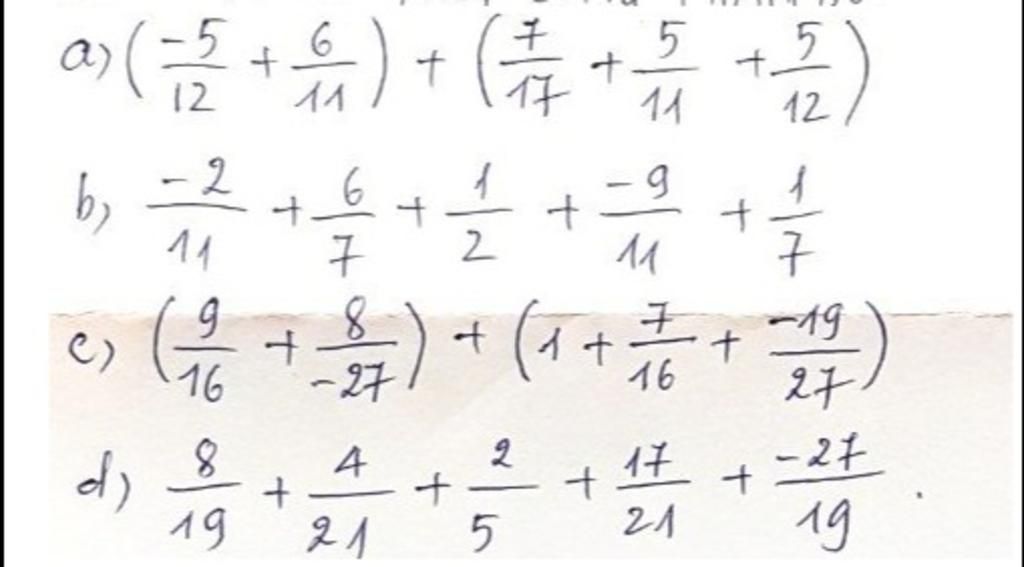 a) (-5/12 + 6/11) + (7/17 + 5/11 + 5/12)
b) -2/11 + 6/7 + 1/2 + -9/11 + 1/7
c) (9/16 + 8/-27) + (1 + 7/16 + -19/27)
d) 8/19 + 4/21 + 2/5 + 17/21 + -27/19 .